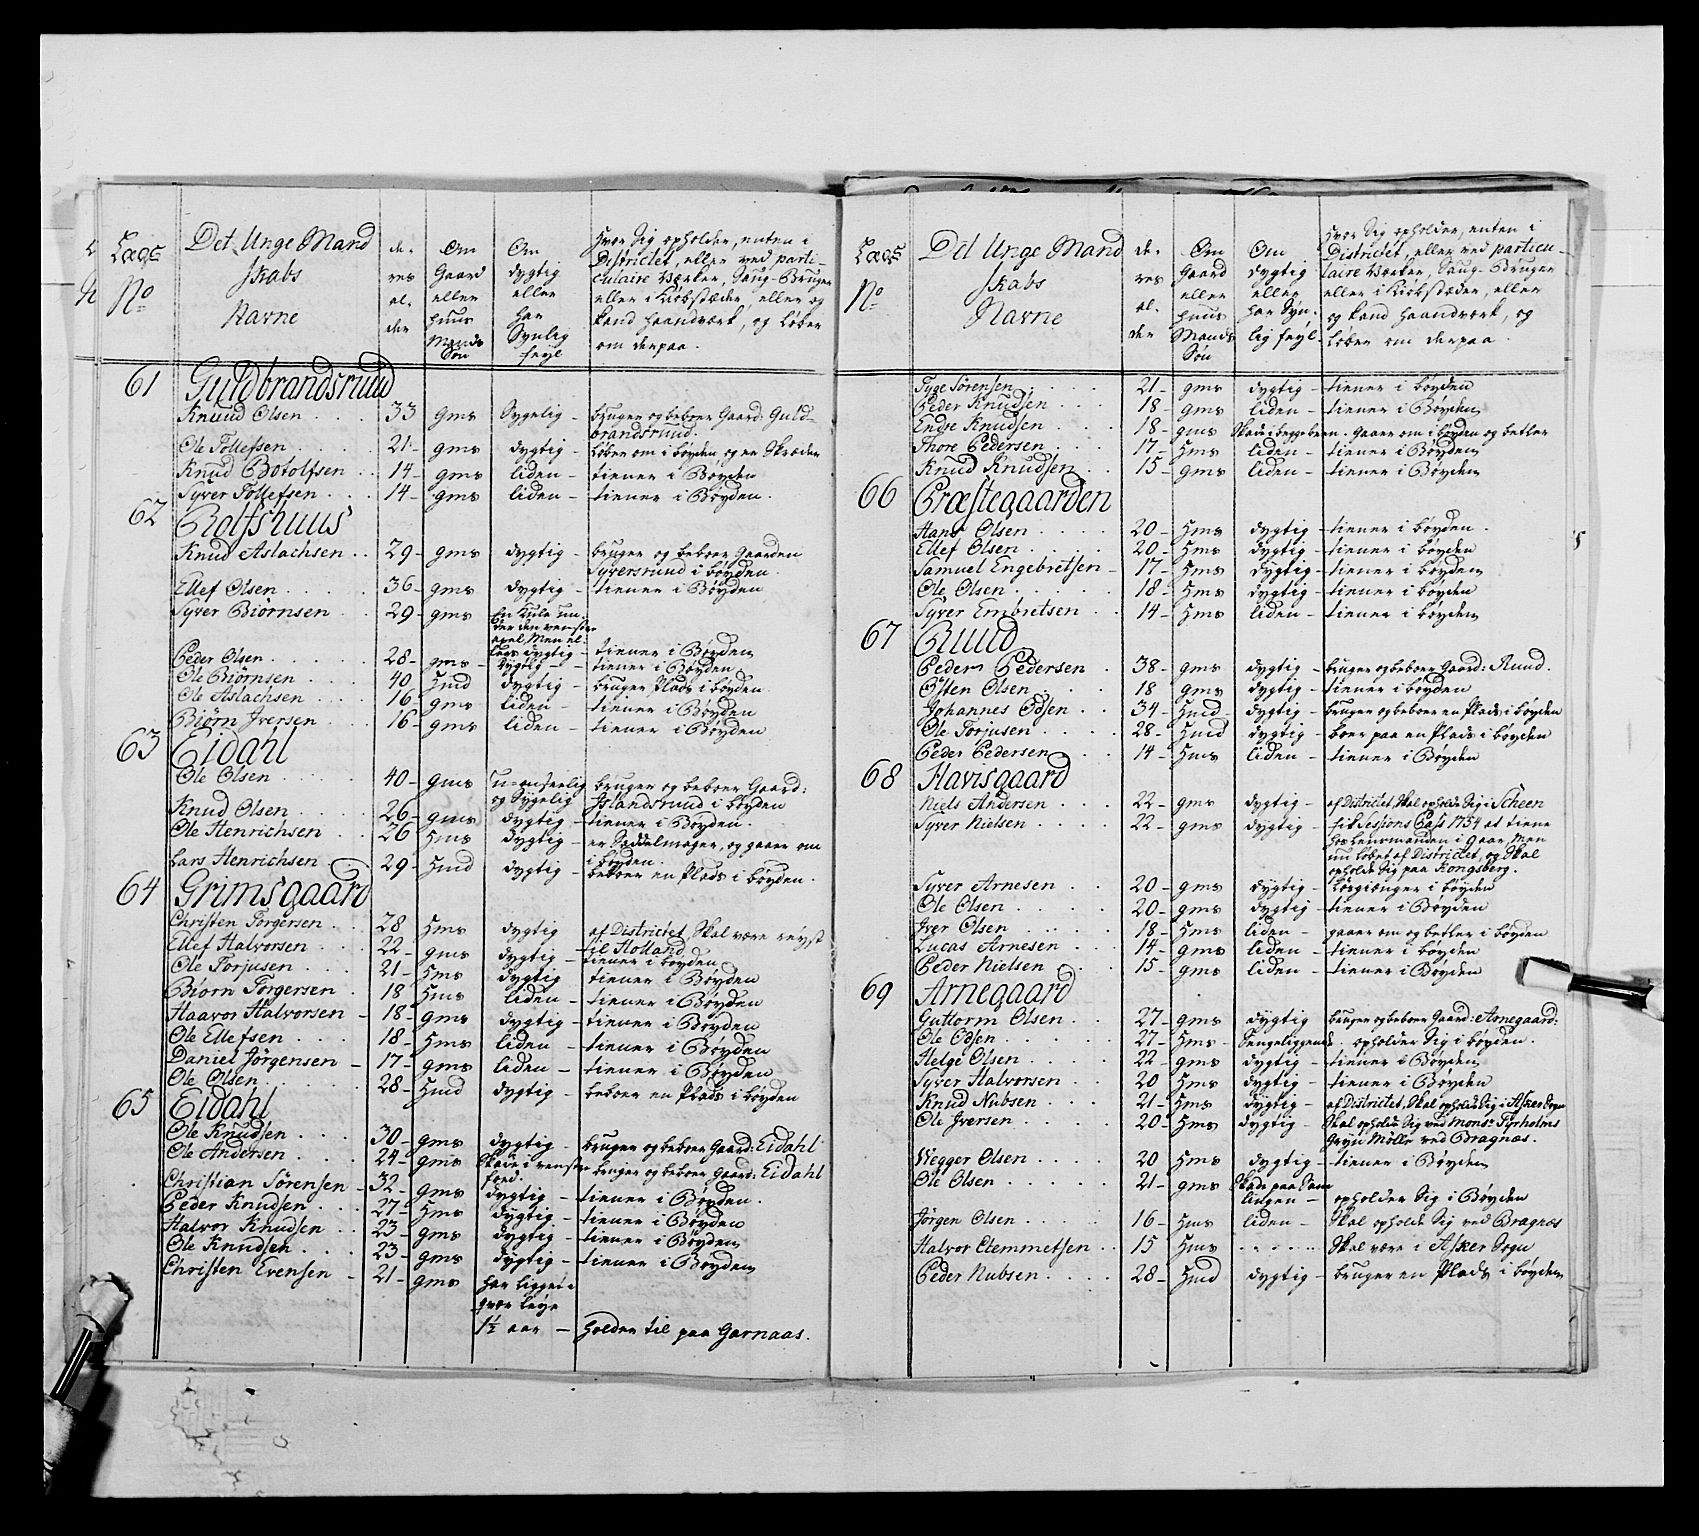 Lægs No
Det Unge Mandskabs Navne
deres alder
Om Gaard eller huus Mands Søn
Om dygtig eller har Synlig feyl
hvor Sig opholder, enten i Districtet, eller ved particulaire Værker, Saug-Bruger eller i Kiøbstæder, eller og kand haandværk, og løber om derpaa.
61 Guldbrandsruud
Knuud Olsen . . . 33 gms Sygelig - bruger og beboer Gaard: Guld-
brandsruud.
Ole Tollefsen . . . 21- gms dygtig - løber om i bøyden og er Skræder
Knud Botolfsen . . 14- gms liden - tiener i Bøyden
Syver Tollefsen . . . 14- gms liden - tiener i Bøyden.
62 Rolfshuus
Knud Aslachsen . . 29- gms dygtig - bruger og beboer Gaarden
Syversrud i bøyden.
Ellef Olsen . . . . 36- gms dygtig - tiener i Bøyden
Syver Biørnsen . . 29- gms En Kule un-
der den venstre
axel, Men el-
Peder Olsen . . . . 28- gms - lers dygtig - tiener i Bøyden
Ole Biørnsen . . . 40 hmd dygtig - - tiener i Bøyden
Ole Aslachsen . . . 16- gms dygtig - bruger Plads i bøyden.
Biørn Iversen . . . 16- gms liden - tiener i Bøyden
liden - tiener i Bøyden
63 Eidahl
Ole Olsen . . . . 40- gms Un-anseelig
og Sygelig bruger og beboer Gaard:
Islandsruud i bøyden
Knud Olsen . . . . 26- gms dygtig - tiener i Bøyden.
Ole Henrichsen . . 26 hms dygtig - er Saddelmager, og gaaer om
i bøyden.
Lars Henrichsen . . 29- hmd dygtig - beboer en Plads i bøyden.
64 Grimsgaard
Christen Torgersen . . 28 hms dygtig af Districtet Skal være reyst
til Holland
Ellef Halvorsen . . . 22- gms dygtig - tiener i bøyden
Ole Torjusen . . . 21- hms dygtig tiener i Bøyden
Biørn Torgersen . 18 hms liden - tiener i Bøyden
Haavor Halvorsen - 18- gms dygtig - tiener i Bøyden
Ole Ellefsen . . . 18- hms liden - tiener i Bøyden
Daniel Jörgensen - 17- gms liden - tiener i Bøyden
Ole Olsen . . . . . 28- hmd dygtig - beboer en Plads i bøyden
65 Eidahl
Ole Knudsen . . . 30- gms dygtig - bruger og beboer Gaard: Eidahl
Ole Andersen . . . . 24- gms Skade i venstre
foed. bruger og beboer Gaard: Eidahl
Christian Sörensen - 32- gms dygtig - tiener i Bøyden.
Peder Knudsen . . . 27- hms dygtig - tiener i Bøyden
Halvor Knudsen . . 23- gms dygtig - tiener i Bøyden
Ole Knudsen . . . 23- gms dygtig - tiener i Bøyden
Christen Evensen - 21- gms har ligget i
qvær leye
1½ aar - holder til paa Garnaas.
Lægs No
Det Unge Mandskabs Navne
deres alder
Om Gaard eller huus Mands Søn
Om dygtig eller har Synlig feyl
hvor Sig opholder, enten i Districtet, eller ved particulaire Værker, Saug-Bruger eller i Kiøbstæder, eller og kand haandværk, og løber om derpaa.
Tyge Sörensen . . . . 21- gms dygtig - tiener i bøyden
Peder Knudsen . . . 18- gms liden - tiener i Bøyden
Endre Knudsen . . . 18- gms Skade i begge been. Gaaer om i bøyden og betler
Thore Pedersen . . . 17- hms liden - tiener i Bøyden
Knud Knudsen . . 15- gms liden - tiener i Bøyden
66 Præstegaarden
Hans Olsen . . . . 20- hms dygtig - tiener i bøyden.
Ellef Olsen . . . . 20- hms dygtig - tiener i bøyden
Samuel Engebretsen - 17- hms dygtig - tiener i bøyden
Ole Olsen . . . . . 18- hms dygtig - tiener i bøyden
Syver Embretsen . . 14- hms liden - tiener i bøyden
67 Ruud
Peder Pedersen . 38- gms dygtig - bruger og beboer Gaard: Ruud.
Østen Olsen . . . 18 gms dygtig - tiener i bøyden
Johannes Odsen . . 34- hmd dygtig - bruger og beboer en Plads i bøyden
Ole Torjusen . . . . 28- hmd dygtig - boer paa en Plads i bøyden
Peder Pedersen . . . 14- hms liden - tiener i Bøyden
68 Havisgaard
Niels Andersen . . . 22- gms dygtig - af Districtet, Skal opholde Sig i Scheen
Syver Nielsen . . . 22- gms dygtig - fik Sessions Pass 1754 at tiene
hos Lensmanden i Gaar, Men
nu løbet af Districtet, og Skal
opholde Sig paa Kongsberg.
Syver Arnesen . . 20- gms dygtig - Løsgiænger i bøyden
Ole Olsen . . . . . 20- gms dygtig - tiener i Bøyden
Iver Olsen . . . . 18- hms liden - gaaer om og betler i bøyden
Lucas Arnesen . . 14- gms liden - tiener i bøyden
Peder Nielsen . . 15- gms liden - tiener i Bøyden
69 Arnegaard
Guttorm Olsen . . 27- gms dygtig bruger og beboer Gaard: Arnegaard:
Ole Odsen . . . . . . 27- hms - Sengeliggende - opholder Sig i bøyden.
Helge Olsen . . . . 22- gms dygtig - tiener i Bøyden
Syver Halvorsen . . 20 hms dygtig - tiener i Bøyden
Knud Nubsen . . . 21- hms dygtig - af Districtet, Skal opholde Sig i Asker Sogn
Ole Iversen . . . . 20- hms dygtig - Skal opholde Sig ved Monsr Tyrholms
Gryn Mölle ved Bragnæs.
Wegger Olsen . . . . 20 hms dygtig - tiener i Bøyden
Ole Olsen . . . . . 21- gms Skade paa
lingen - opholder Sig i Bøyden
Jörgen Olsen . . . . 16- hms liden - Skal opholde Sig ved Bragnæs
Halvor Clemmetsen . . 15 hms . . . . . . Skal være i Asker Sogn
Peder Nubsen . . . . 28- hmd dygtig - bruger en Plads i bøyden